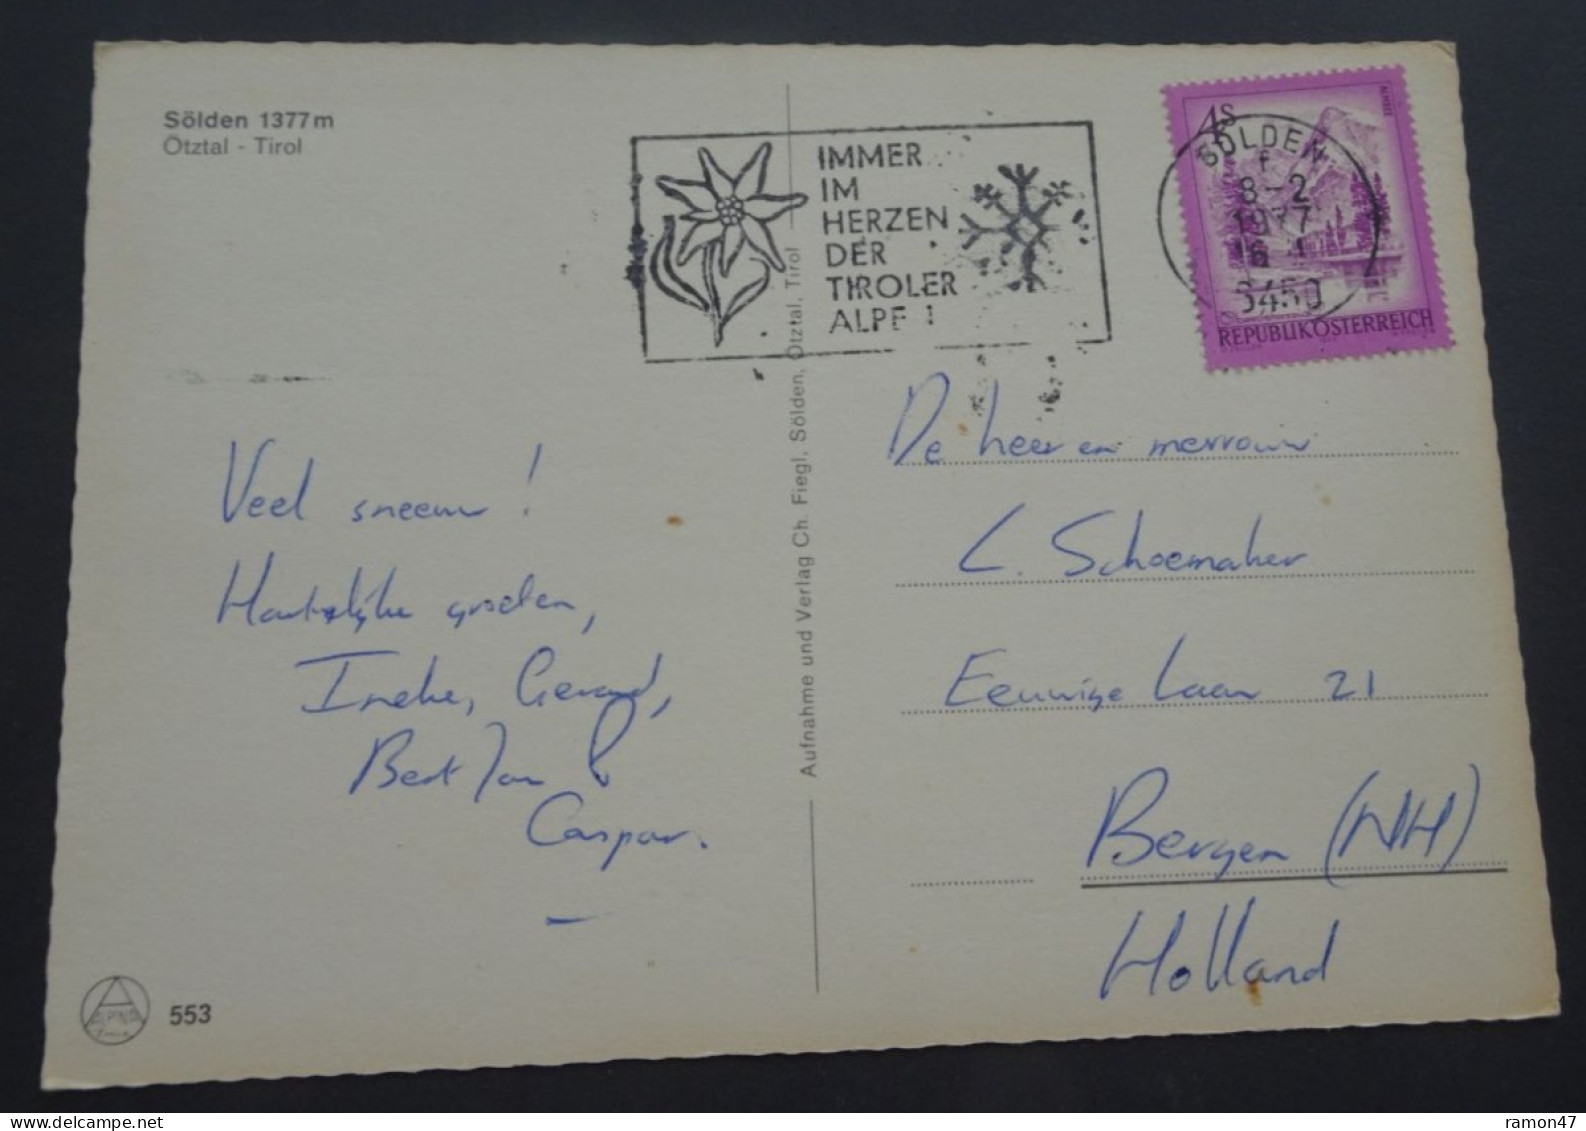 Sölden 1377 m
Ötztal - Tirol
IMMER
IM
HERZEN
DER
TIROLER
ALPE !
4S
ALMSEE
SÖLDEN
f
8-2
1977
16
6450
REPUBLIK ÖSTERREICH
Veel sneeuw!
Hartelijke groeten,
Ineke, Gerard,
Bert Jan &
Caspar.
Aufnahme und Verlag Ch. Fiegl, Sölden, Ötztal, Tirol
De heer en mevrouw
L. Schoemaker
Eeuwige Laan 21
Bergen (NH)
Holland
ALPINA
553
www.delcampe.net
ramon47